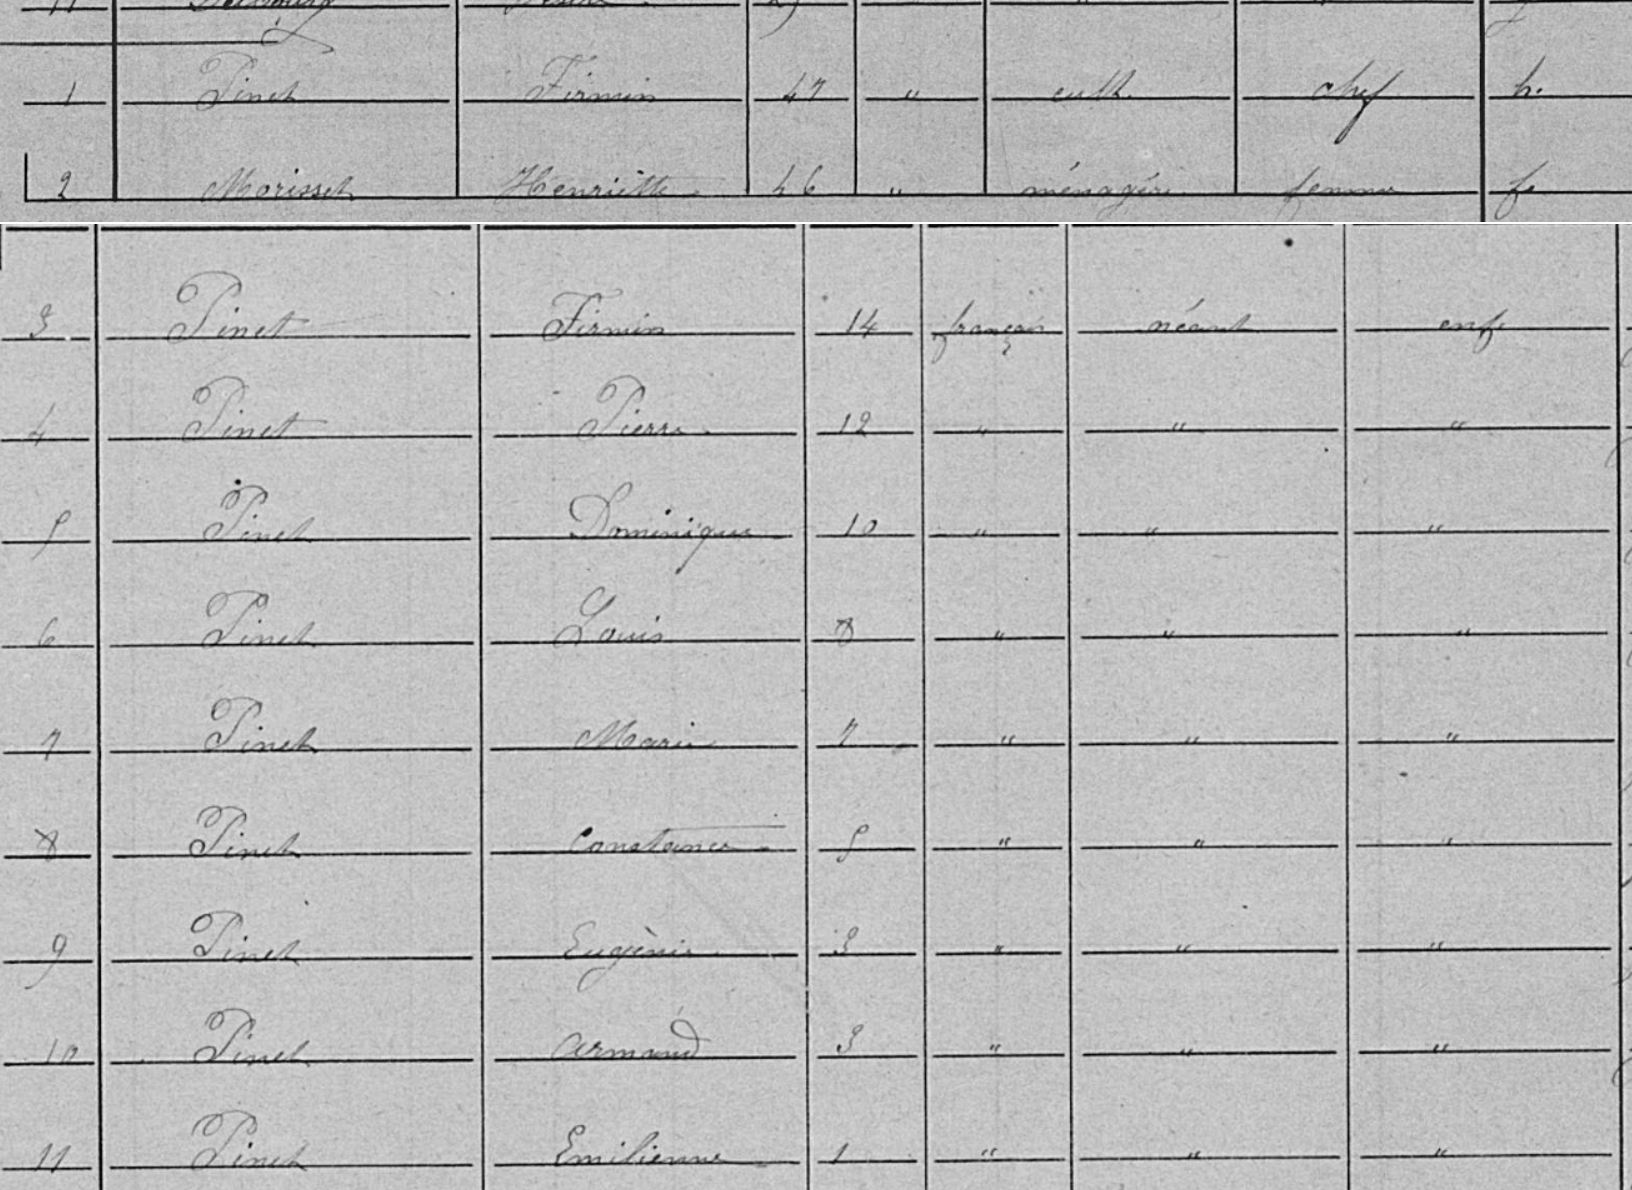 11
1 Pinet Firmin 47 " cult. chef h.
2 Morisset Henriette 46 " ménagère femme f.
3 Pinet Firmin 14 français néant enf.
4 Pinet Pierre 12 " " "
5 Pinet Dominique 10 " " "
6 Pinet Louis 8 " " "
7 Pinet Marie 7 " " "
8 Pinet Constance 5 " " "
9 Pinet Eugènie 3 " " "
10 Pinet Armand 3 " " "
11 Pinet Emilienne 1 " " "